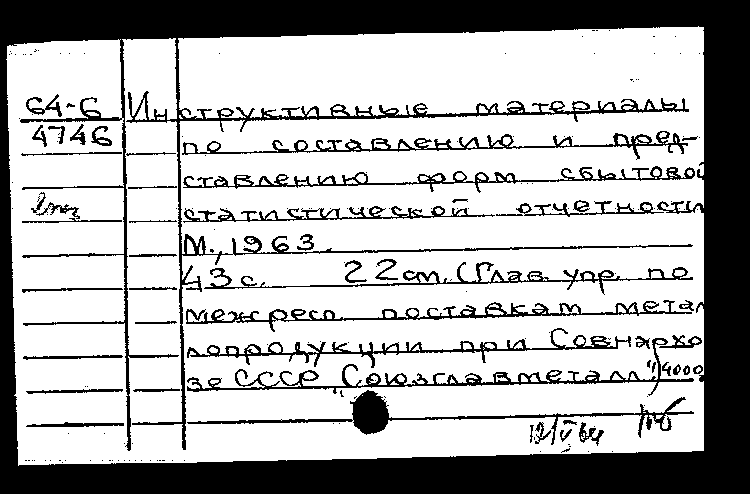 64-6 Инструктивные материалы
4746 по составлению и пред-
ставлению форм сбытовой
статистической отчетности
М., 1963.
43 с. 22 см. (Глав. упр. по
межресп. поставкам метал
лопродукции при Совнархо
зе СССР „Союзглавметалл“) 4000
12/V 64